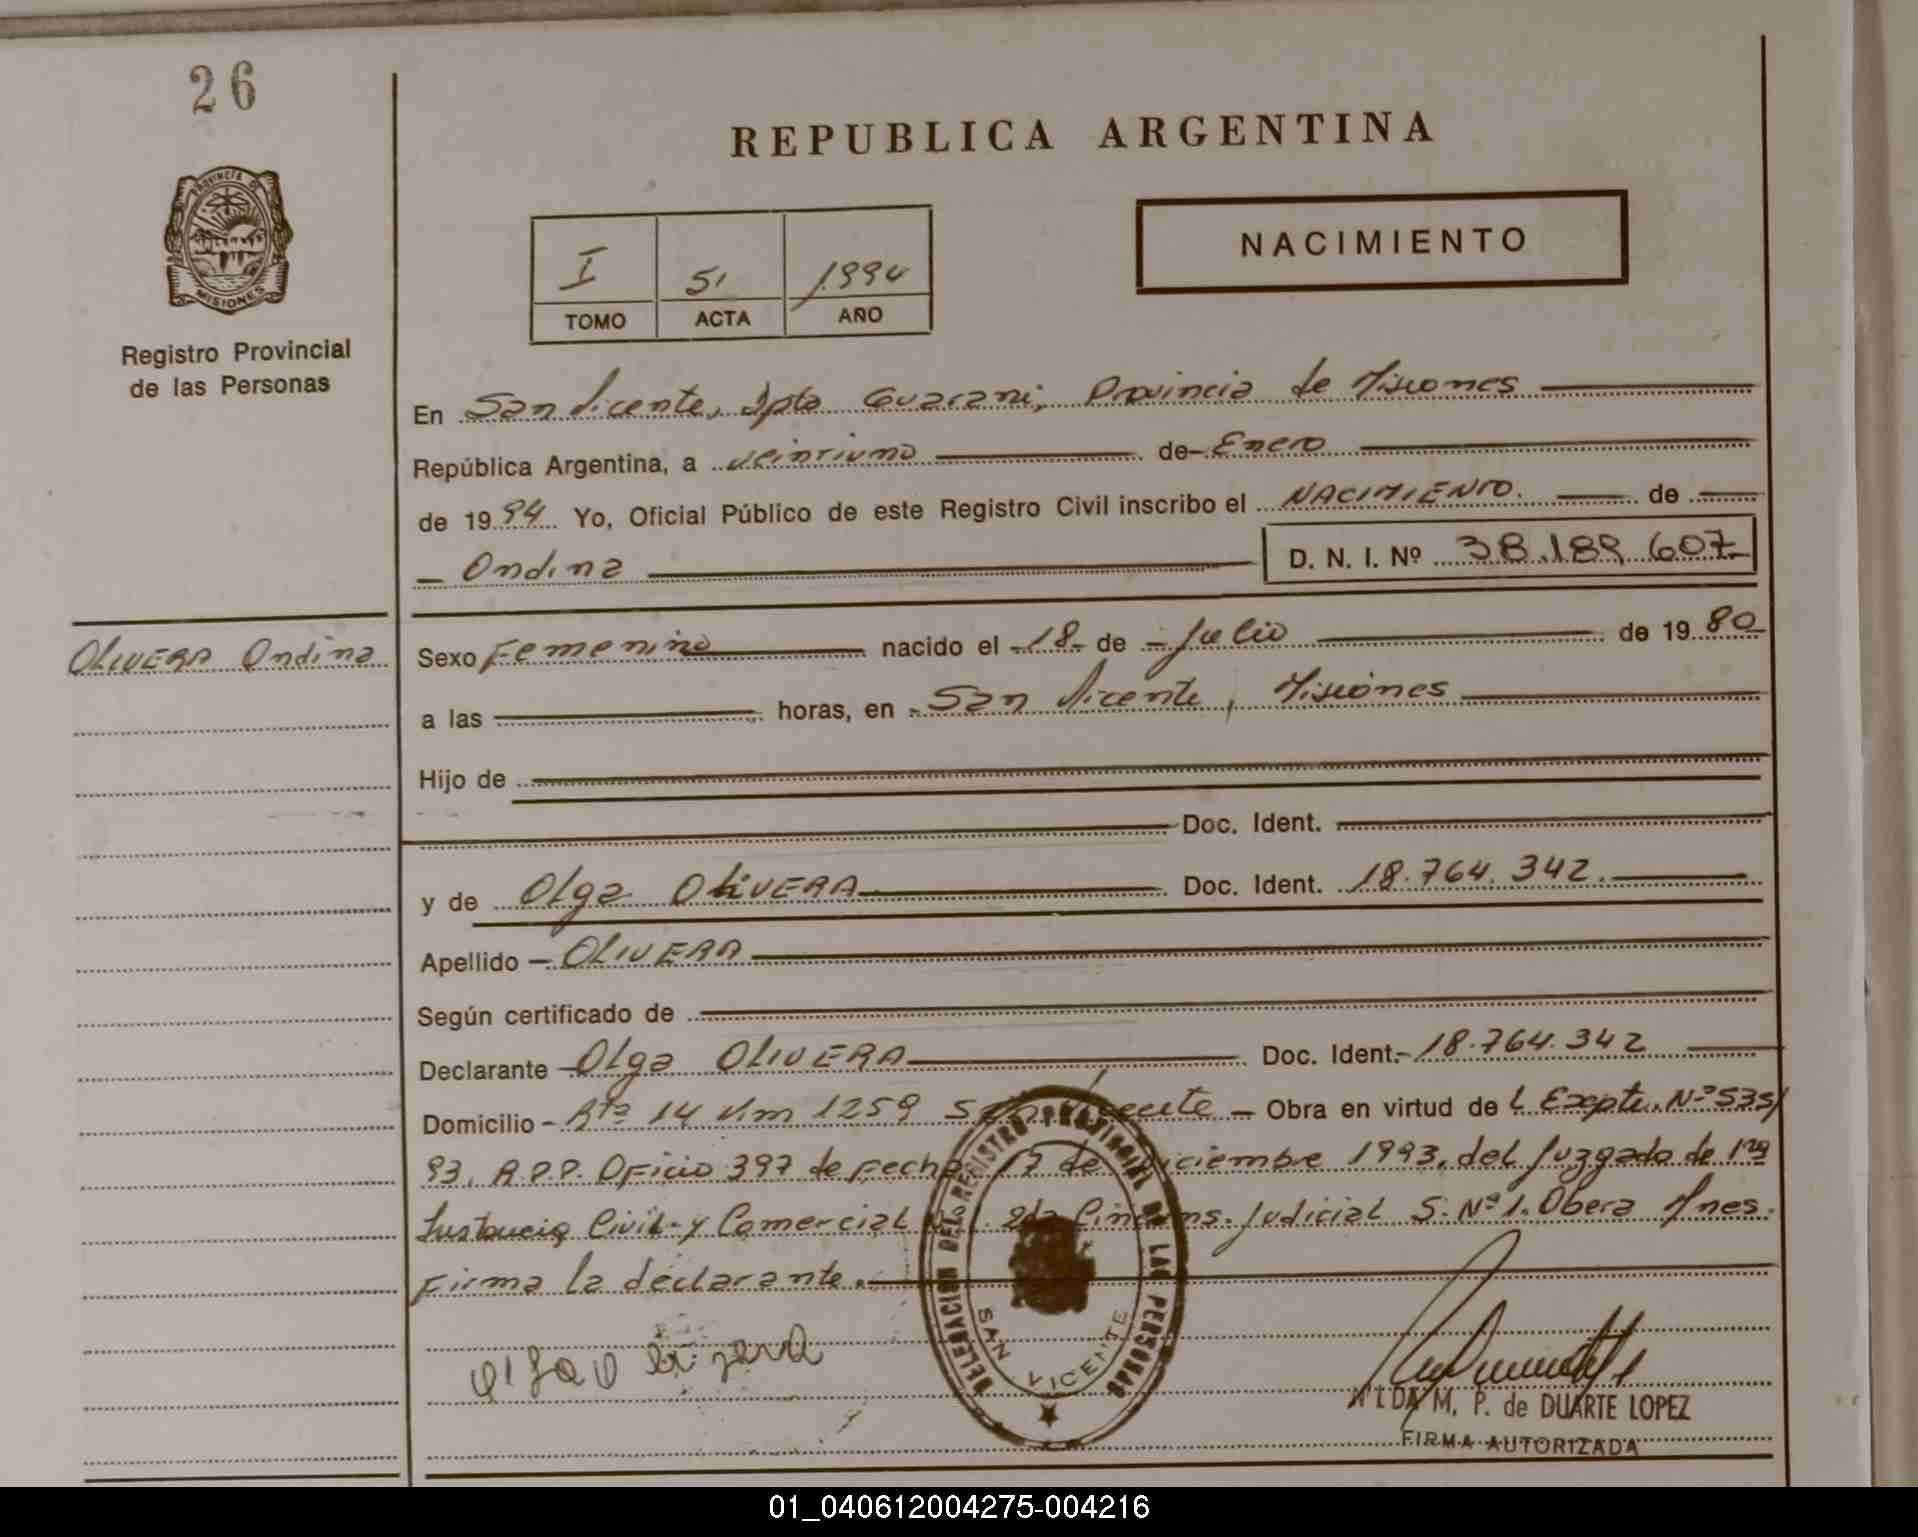 26
REPUBLICA ARGENTINA
PROVINCIA DE
MISIONES
Registro Provincial
de las Personas
I 51 1994
TOMO ACTA AÑO
NACIMIENTO
En San Vicente, Dpto Guarani; Provincia de Misiones
República Argentina, a veintiuno de Enero
de 1994 Yo, Oficial Público de este Registro Civil inscribo el NACIMIENTO. de
Ondina D. N. I. Nº 38.189.607
OLIVERA Ondina
Sexo Femenino nacido el 18 de Julio de 1980
a las horas, en San Vicente, Misiones
Hijo de
Doc. Ident.
y de Olga OliVERA Doc. Ident. 18.764.342.
Apellido OLIVERA
Según certificado de
Declarante Olga OLIVERA Doc. Ident. 18.764.342
Domicilio Rta 14 Km 1259 San Vicente Obra en virtud de L Expte. Nº 535/
93. A.P.P. Oficio 397 de fecha 17 de Diciembre 1993, del Juzgado de 1ra
Instancia Civil y Comercial Nº1. 2da Circuns. Judicial S. Nº 1. Obera Mnes.
Firma la declarante.
DELEGACION DEL REGISTRO PROVINCIAL DE LAS PERSONAS
SAN VICENTE
NILDA M. P. de DUARTE LOPEZ
FIRMA AUTORIZADA
01_040612004275-004216